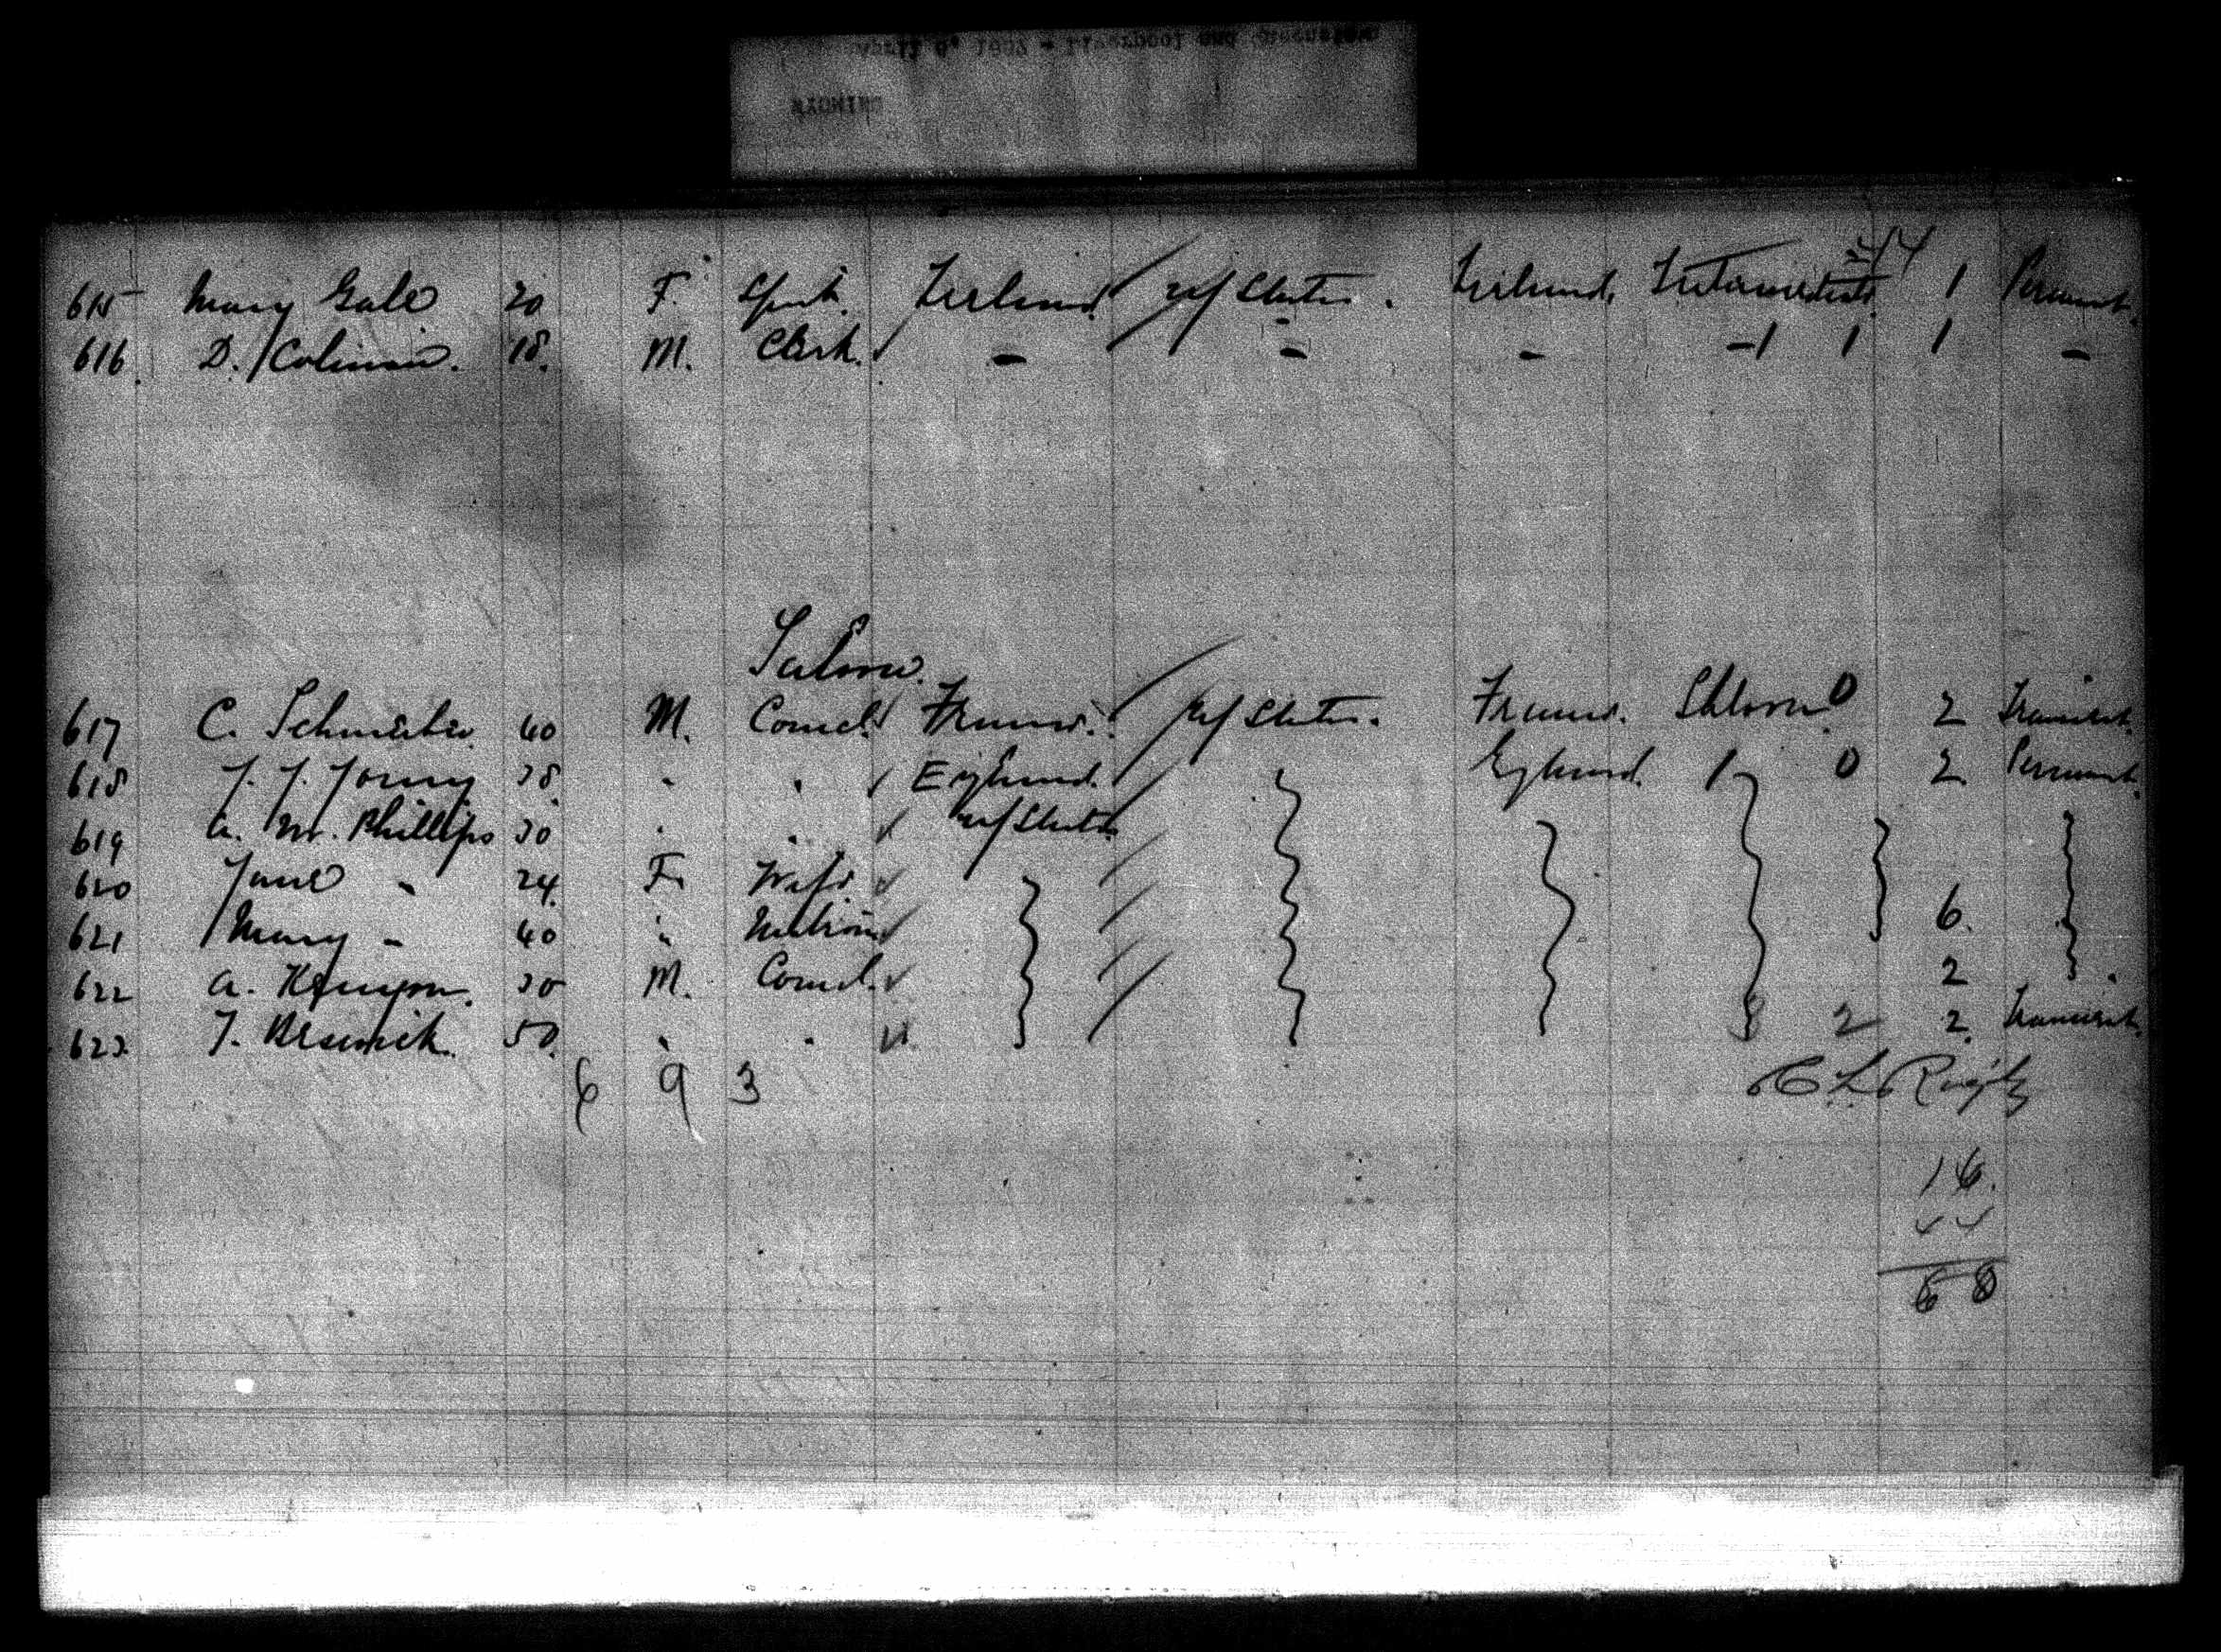 44
615 Mary Gale 20 F. Spt. Ireland u/States. Ireland. Intermediate 1 Permant.
616. D. Colman. 18. M. Clerk. - - - - 1 1 1 -
Saloon.
617 C. 40 M. Comcl. France. u/States. France. Saloon 0 2 Transient.
618 J. J. Young 38 " " England. England. 0 2 Permant.
619 A. M. Phillips 30 " " u/States
620 Jane " 24 F. Wife
621 Mary " 40 " Matron 6.
622 A. Kenyon. 30 M. Comcl. 2
623. J. 50. " " 2 2. Transient.
6 9 3
16.
44
60